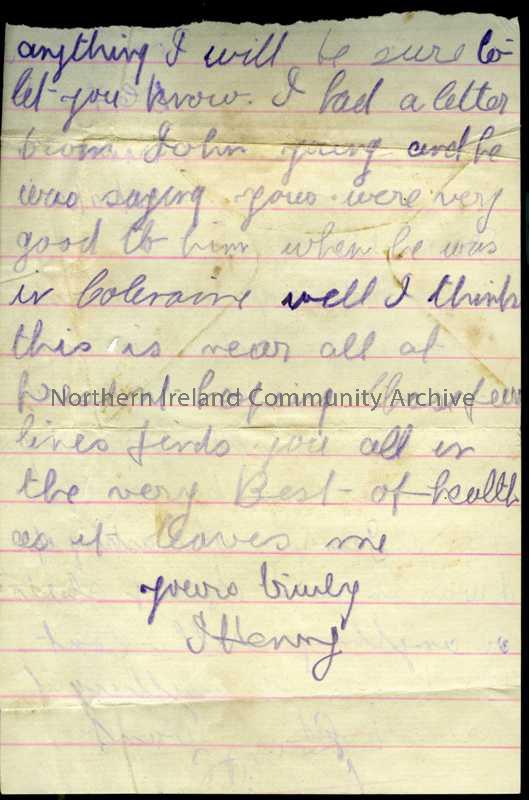 anything I will be sure to
let you know. I had a letter
from John young and he
was saying yous were very
good to him when he was
in Coleraine well I think
this is near all at
present hoping these few
Northern Ireland Community Archive
lines finds you all in
the very Best of health
as it leaves me
yours truly
J Henry